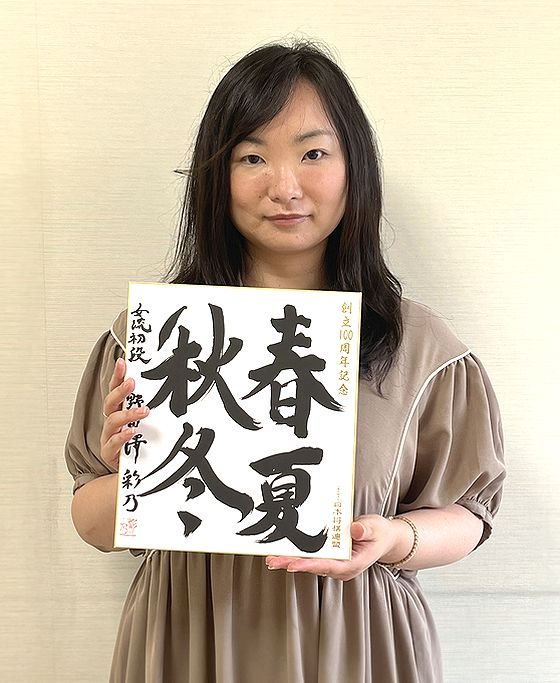 創立100周年記念
春夏
秋冬
女流初段
野田澤 彩乃
日本将棋連盟